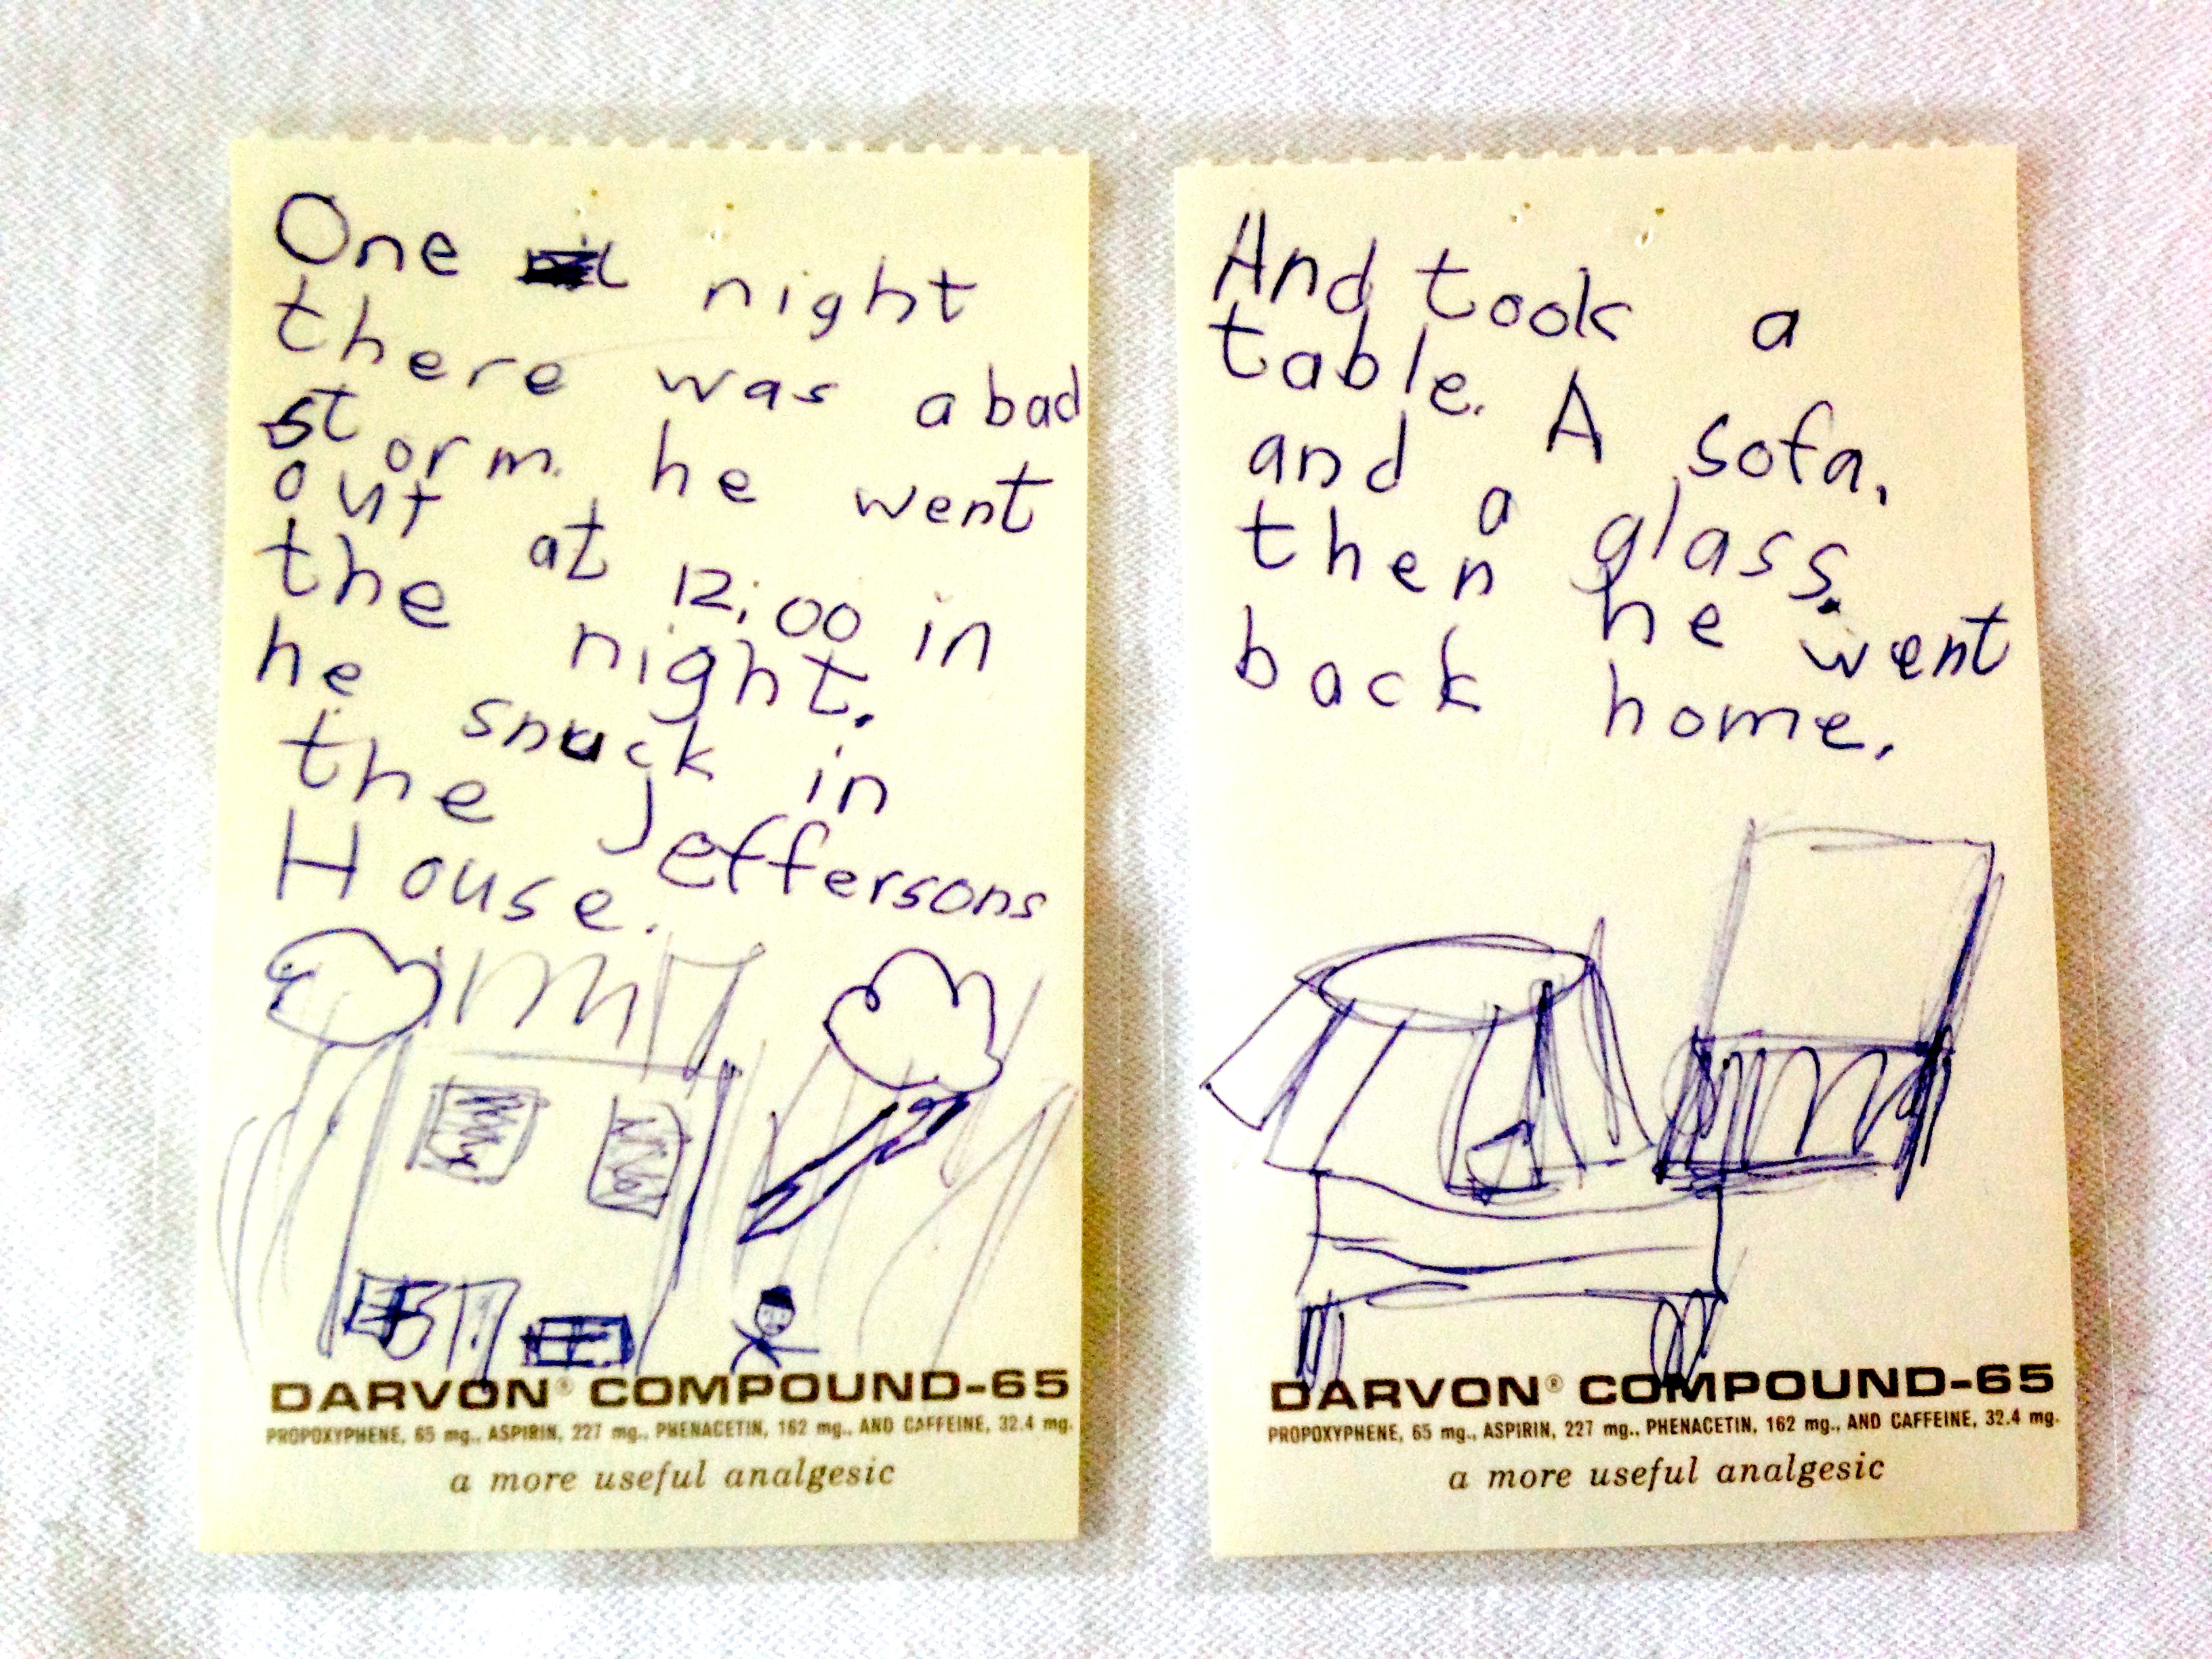 One night
there was a bad
storm. he went
out at 12:00 in
the night.
he snuck in
the Jeffersons
House.
DARVON® COMPOUND-65
PROPOXYPHENE, 65 mg., ASPIRIN, 227 mg., PHENACETIN, 162 mg., AND CAFFEINE, 32.4 mg.
a more useful analgesic
And took a
table. A sofa.
and a glass.
then he went
back home.
DARVON® COMPOUND-65
PROPOXYPHENE, 65 mg., ASPIRIN, 227 mg., PHENACETIN, 162 mg., AND CAFFEINE, 32.4 mg.
a more useful analgesic